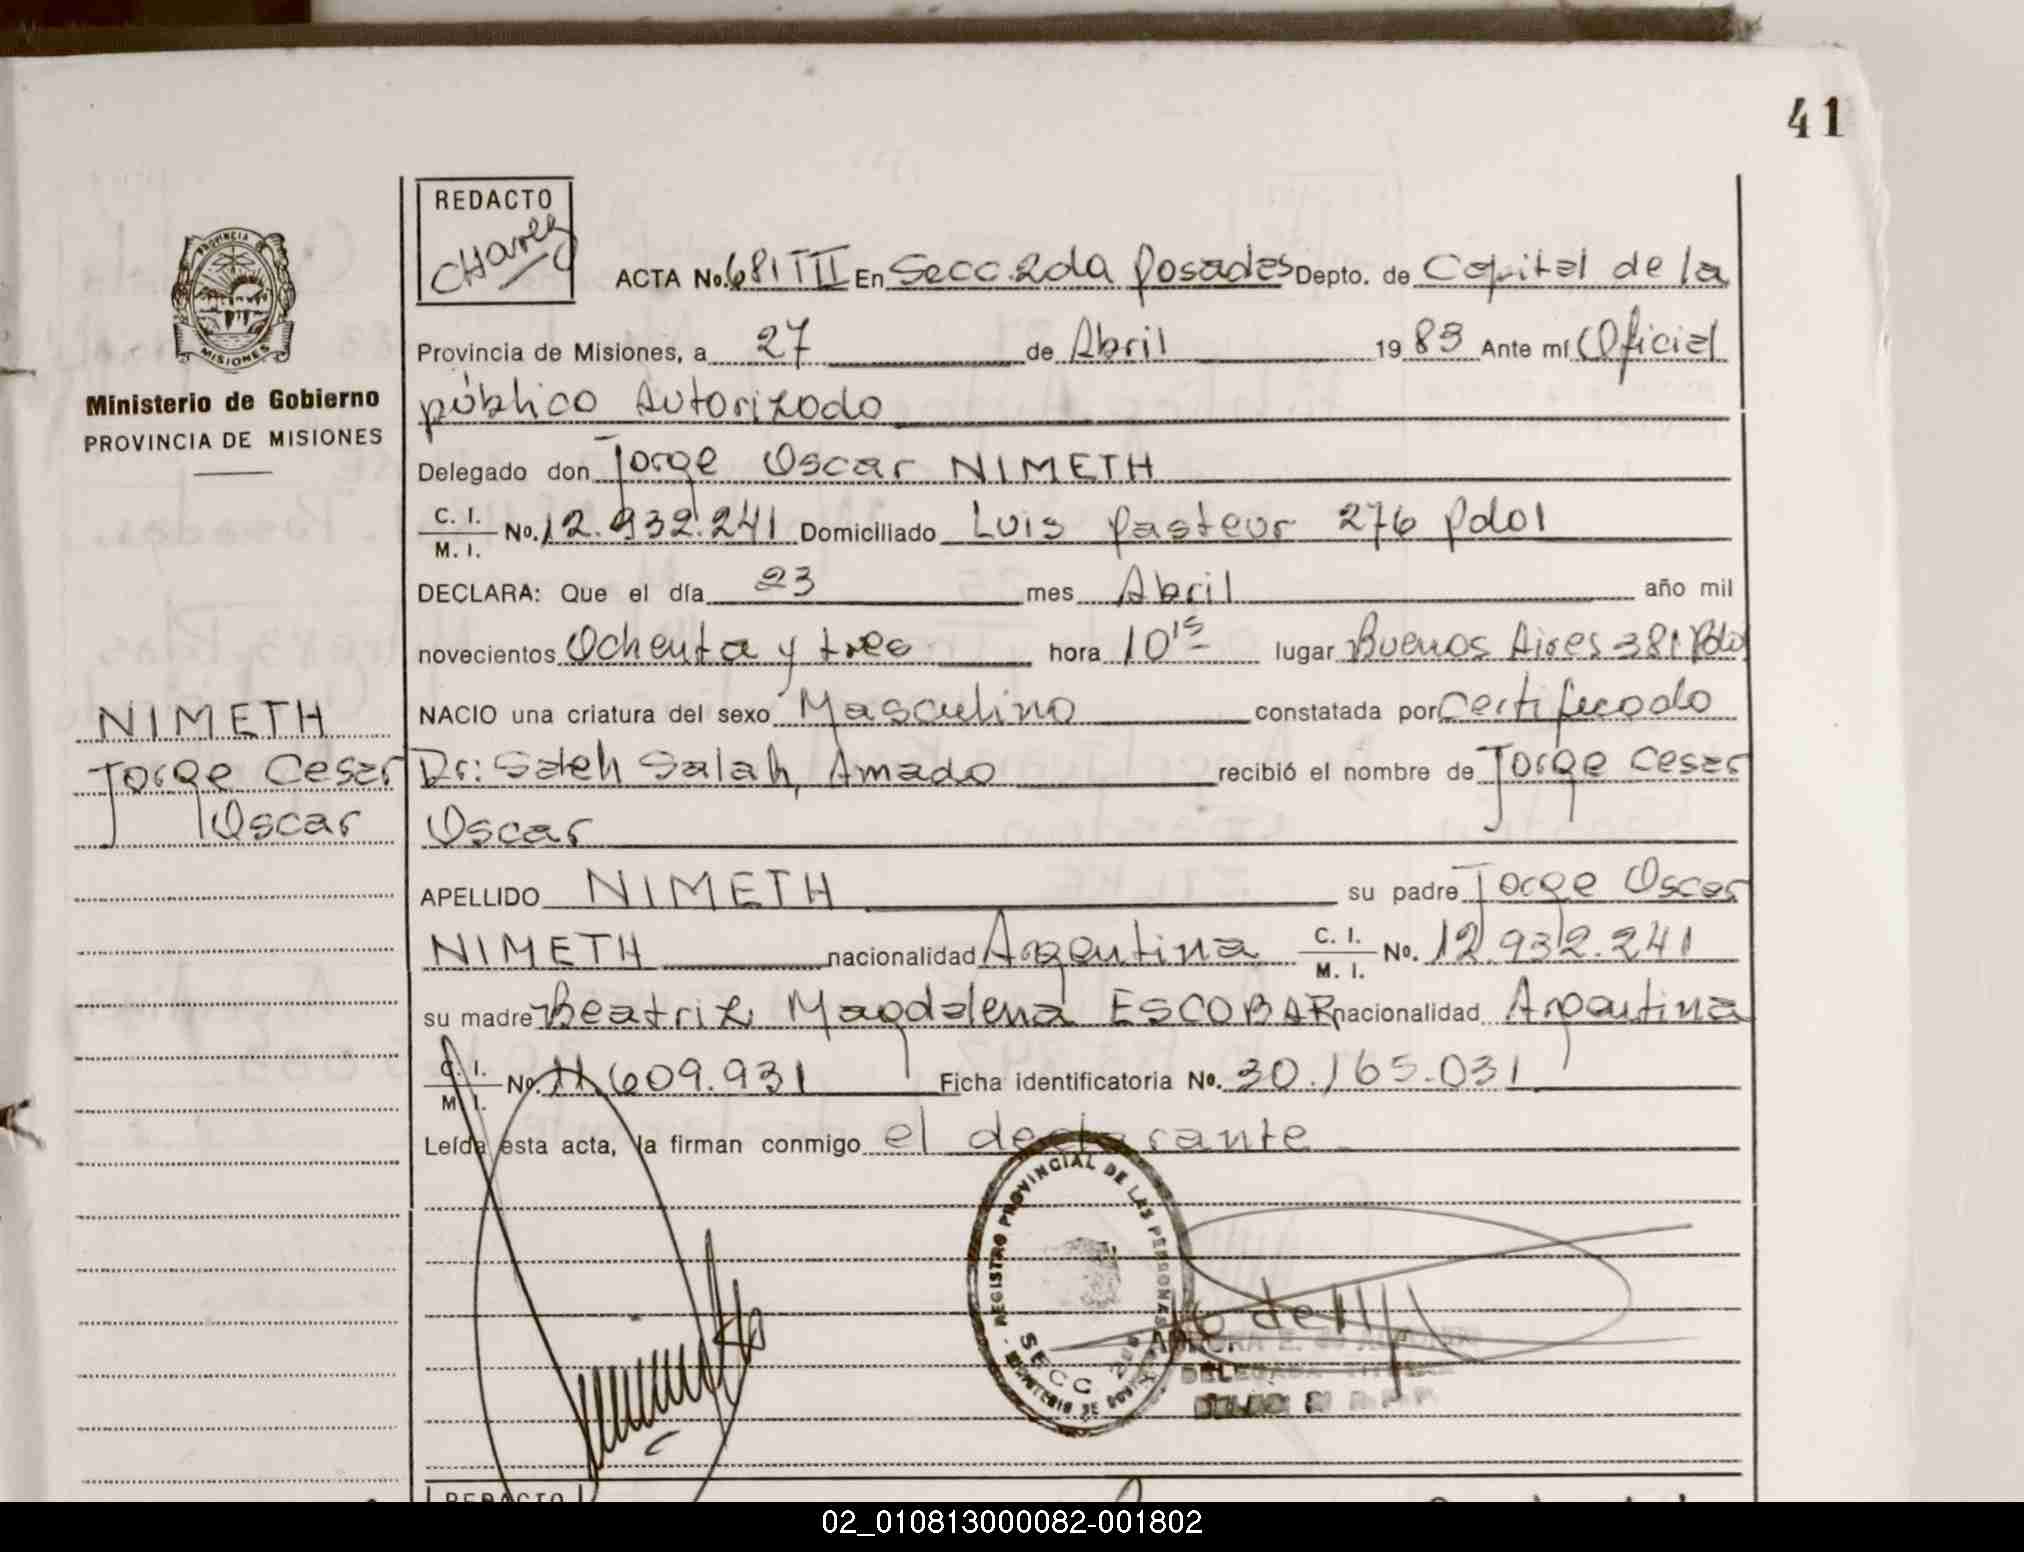 41
REDACTO
Chavez
ACTA No. 681 TIII En Secc. 2da Posadas Depto. de Capital de la
PROVINCIA DE
MISIONES
Provincia de Misiones, a 27 de Abril 1983 Ante mí Oficial
Ministerio de Gobierno
PROVINCIA DE MISIONES
público Autorizado
Delegado don Jorge Oscar NIMETH
C. I.
M. I. No. 12.932.241 Domiciliado Luis Pasteur 276 Pdas
DECLARA: Que el día 23 mes Abril año mil
novecientos Ochenta y tres hora 10 15 lugar Buenos Aires 381 Pdas
NACIO una criatura del sexo Masculino constatada por Certificado
NIMETH
Jorge Cesar
Oscar
Dr: Saleh Salah, Amado recibió el nombre de Jorge Cesar
Oscar
APELLIDO NIMETH su padre Jorge Oscar
NIMETH nacionalidad Argentina C. I.
M. I. No. 12.932.241
su madre Beatriz Magdalena ESCOBAR nacionalidad Argentina
C. I.
M. I. No. 11.609.931 Ficha identificatoria No. 30.165.031
Leída esta acta, la firman conmigo el declarante
REGISTRO PROVINCIAL DE LAS PERSONAS
SECC 2da
MINISTERIO DE GOBIERNO
DELEGADA TITULAR
REDACTO
02_010813000082-001802